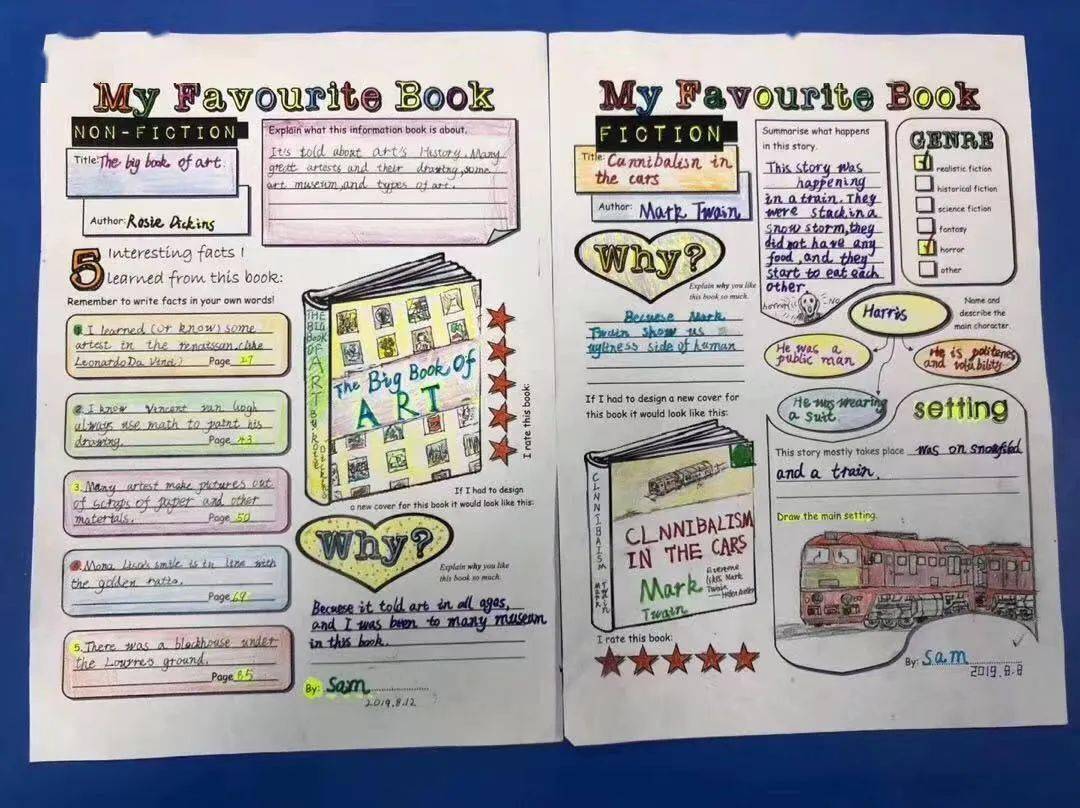 My Favourite Book
NON-FICTION
Title: The big book of art.
Author: Rosie Dickins
Explain what this information book is about.
It's told about art's History. Many
great artests and their drawing, some
art museum, and types of art.
5 Interesting facts I
learned from this book:
Remember to write facts in your own words!
1. I learned (or know) some
artest in the renaissan. (like
Leonardo Da Vinci)
Page 27
2. I know Vincent van Gogh
always use math to paint his
drawing.
Page 43
3. Many artest make pictures out
of scraps of paper and other
materials.
Page 50
4. Mona Lisa's smile is in line with
the golden ratio.
Page 69
5. There was a blockhouse under
the Louvre's ground.
Page 85
THE BIG BOOK OF ART BY ROSIE
The Big Book Of
ART
I rate this book:
If I had to design
a new cover for this book it would look like this:
Why?
Explain why you like
this book so much.
Becuase it told art in all ages,
and I was been to many museum
in this book.
By: Sam
2019.8.12
My Favourite Book
FICTION
Title: Cannibalism in
the cars
Author: Mark Twain
Why?
Explain why you like
this book so much.
Becuese Mark
Twain show us
ugliness side of human
If I had to design a new cover for
this book it would look like this:
CLNNIBAISM MARK TWAIN
CLNNIBALISM
IN THE CARS
Mark
Twain
Mark
Twain
I rate this book:
Summarise what happens
in this story.
This story was
happening
in a train. They
were stack in a
snow storm, they
did not have any
food, and they
start to eat each
other.
No
GENRE
realistic fiction
historical fiction
science fiction
fantasy
horror
other
Name and
describe the
main character.
Harris
He was a
public man
He is politenes
and volability
He was wearing
a suit
setting
This story mostly takes place was on snowfild
and a train.
Draw the main setting.
By: Sam
2019.8.8